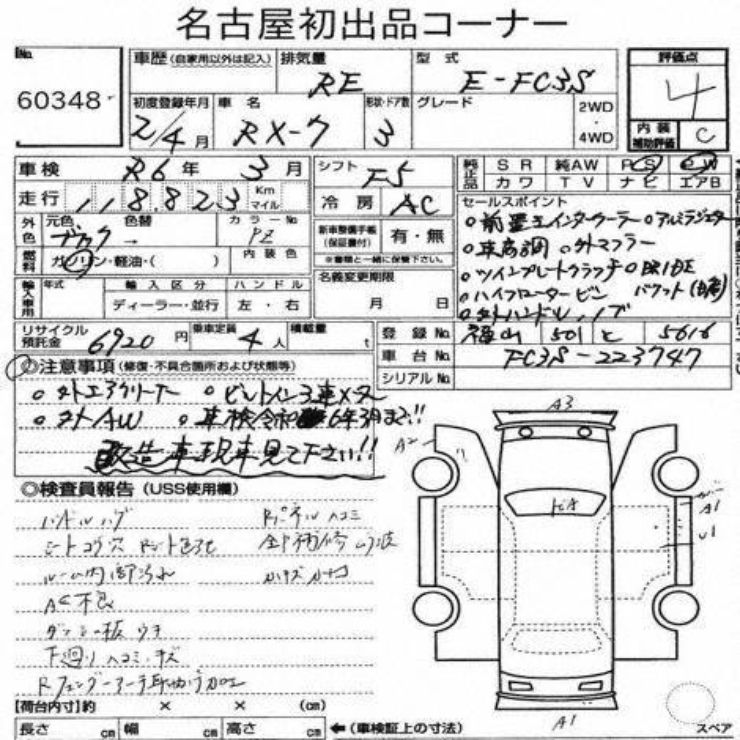 名古屋初出品コーナー
No.
60348
車歴 (自家用以外は記入) 排気量 RE 型式 E-FC3S
評価点 4
初度登録年月 2/4月 車名 RX-7 形状・ドア数 3 グレード 2WD・4WD
内装補助評価 C
車検 R6年 3月 シフト F5
純正品 SR 純AW PS PW
カワ TV ナビ エアB
走行 118,823 Km マイル
冷房 AC
セールスポイント
外色 元色 色替 カラーNo. ブラック PZ
新車整備手帳 (保証書付) 有・無
※書類と一緒に保管下さい。
。前置きインタークーラー 。アルミラジエター
。車高調 。外マフラー
。ツインプレートクラッチ 。BRIDE
燃料 ガソリン・軽油・( ) 内装色
名義変更期限 月 日
バケット
。ハイフロータービン
。外ハンドル、ノブ
輸入車用 年式 輸入区分 ハンドル
ディーラー・並行 左・右
リサイクル預託金 6920円 乗車定員 4人 積載量 t
登録No. 福山 501 と 5616
車台No. FC3S-223747
シリアルNo.
◎注意事項 (修復・不具合箇所および状態等)
。外エアクリーナー 。ピレトイン3連メーター
。外AW 。車検令和6年3月まで!!
改造車現車見て下さい!!
◎検査員報告 (USS使用欄)
ハンドルハゲ Rパネルヘコミ
シートコゲ穴
ルーム内部汚れ 小キズ
AC不良
下廻りヘコミ、キズ
A3
A2
A1
A1
U1
【荷台内寸】約 × × (cm)
長さ cm 幅 cm 高さ cm ←(車検証上の寸法)
スペア